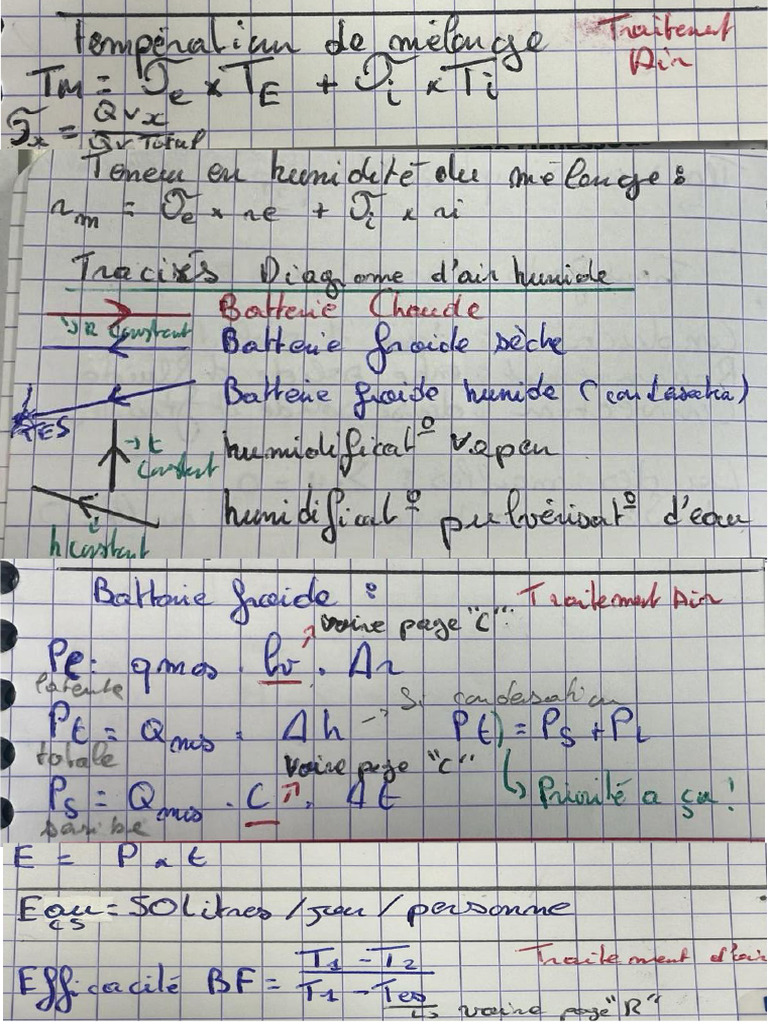 température de mélange
Traitement Air
Tm = σe × TE + σi × Ti
σx = Qvx / Qv Total
Teneur en humidité du mélange :
rm = σe × re + σi × ri
Tracixés Diagrame d'air humide
Batterie Chaude
→ r Constant
Batterie froide sèche
Batterie froide humide (condasation)
TES
humidificat° vapeur
→ t Constant
humidificat° pulvérisat° d'eau
h constant
Batterie froide :
Traitement Air
voire page "C"
Pe : qmas . lv . Δr
latente
Pt = Qmas . Δh → Si condensation
P(t) = Ps + PL
totale
voire page "C"
Ps = Qmas . C . Δt
↳ Priorité a ça !
E = P × t
Eau CS = 50 Litres / jour / personne
Traitement d'air
Efficacité BF = T1 - T2 / T1 - Tes
↳ voire page "R"